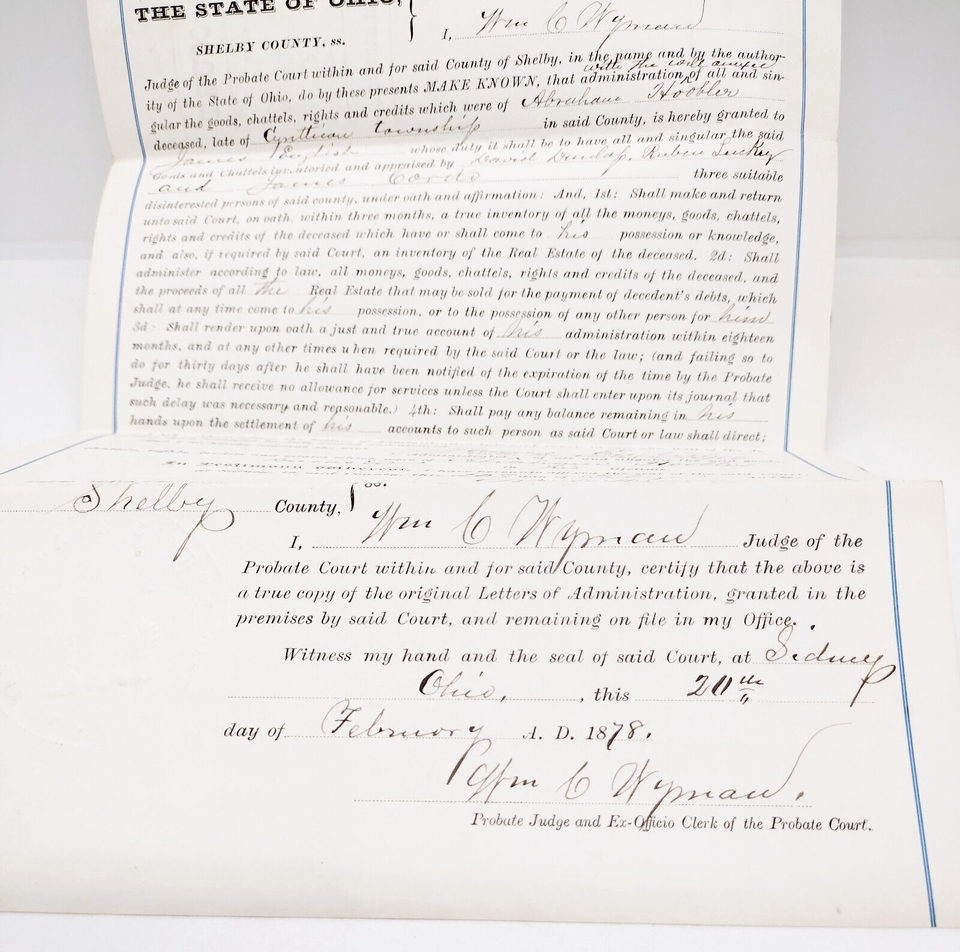 THE STATE OF OHIO,
SHELBY COUNTY, ss.
I, Wm C Wyman
Judge of the Probate Court within and for said County of Shelby, in the name and by the author-
ity of the State of Ohio, do by these presents MAKE KNOWN, that administration with the will annexed of all and sin-
gular the goods, chattels, rights and credits which were of Abraham Hoobler
deceased, late of Cynthian township in said County, is hereby granted to
James English whose duty it shall be to have all and singular the said
Goods and Chattels inventoried and appraised by David Dunlap, Ruben Luckey
and James three suitable
disinterested persons of said county, under oath and affirmation: And, 1st: Shall make and return
unto said Court, on oath, within three months, a true inventory of all the moneys, goods, chattels,
rights and credits of the deceased which have or shall come to his possession or knowledge,
and also, if required by said Court, an inventory of the Real Estate of the deceased. 2d: Shall
administer according to law, all moneys, goods, chattels, rights and credits of the deceased, and
the proceeds of all the Real Estate that may be sold for the payment of decedent's debts, which
shall at any time come to his possession, or to the possession of any other person for him
3d: Shall render upon oath a just and true account of his administration within eighteen
months, and at any other times when required by the said Court or the law; (and failing so to
do for thirty days after he shall have been notified of the expiration of the time by the Probate
Judge, he shall receive no allowance for services unless the Court shall enter upon its journal that
such delay was necessary and reasonable.) 4th: Shall pay any balance remaining in his
hands upon the settlement of his accounts to such person as said Court or law shall direct;
In Testimony Whereof,
Shelby County, } ss.
I, Wm C Wyman Judge of the
Probate Court within and for said County, certify that the above is
a true copy of the original Letters of Administration, granted in the
premises by said Court, and remaining on file in my Office.
Witness my hand and the seal of said Court, at Sidney
Ohio, , this 20th
day of February A. D. 1878.
Wm C Wyman.
Probate Judge and Ex-Officio Clerk of the Probate Court.